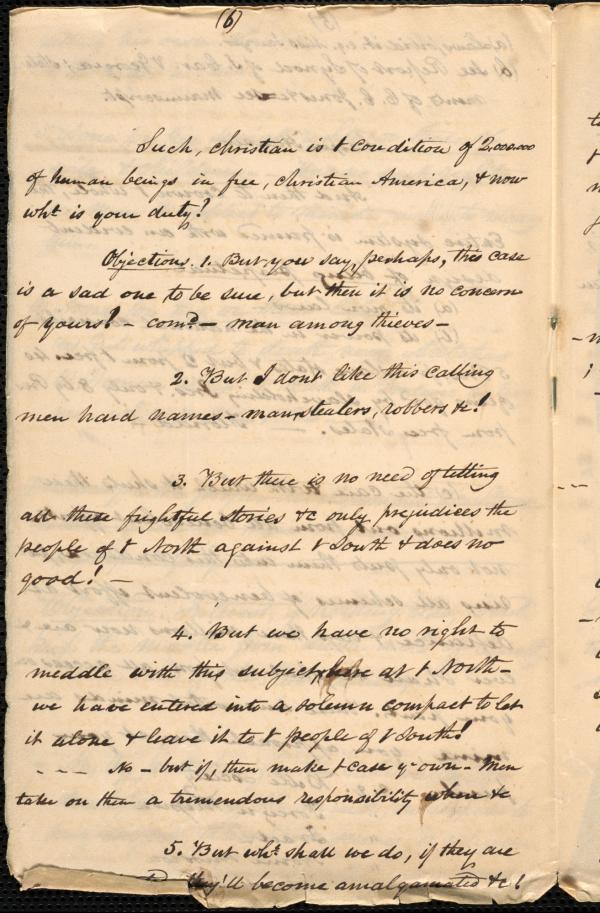 (6)
Such, Christian is t condition of 2,000,000
of human beings in free, Christian America, & now
wht is your duty?
Objections. 1. But you say, perhaps, this case
is a sad one to be sure, but then it is no concern
of yours! - comd - man among thieves -
2. But I dont like this calling
men hard names - man stealers, robbers &c!
3. But there is no need of telling
all these frightful stories &c only prejudices the
people of t North against t South & does no
good! -
4. But we have no right to
meddle with this subject, here at t North -
we have entered into a solemn compact to let
it alone & leave it to t people of t South!
- - - No - but if, then make t case yr own - Men
take on them a tremendous responsibility when &c
5. But wht shall we do, if they are
they'll become amalgamated &c!